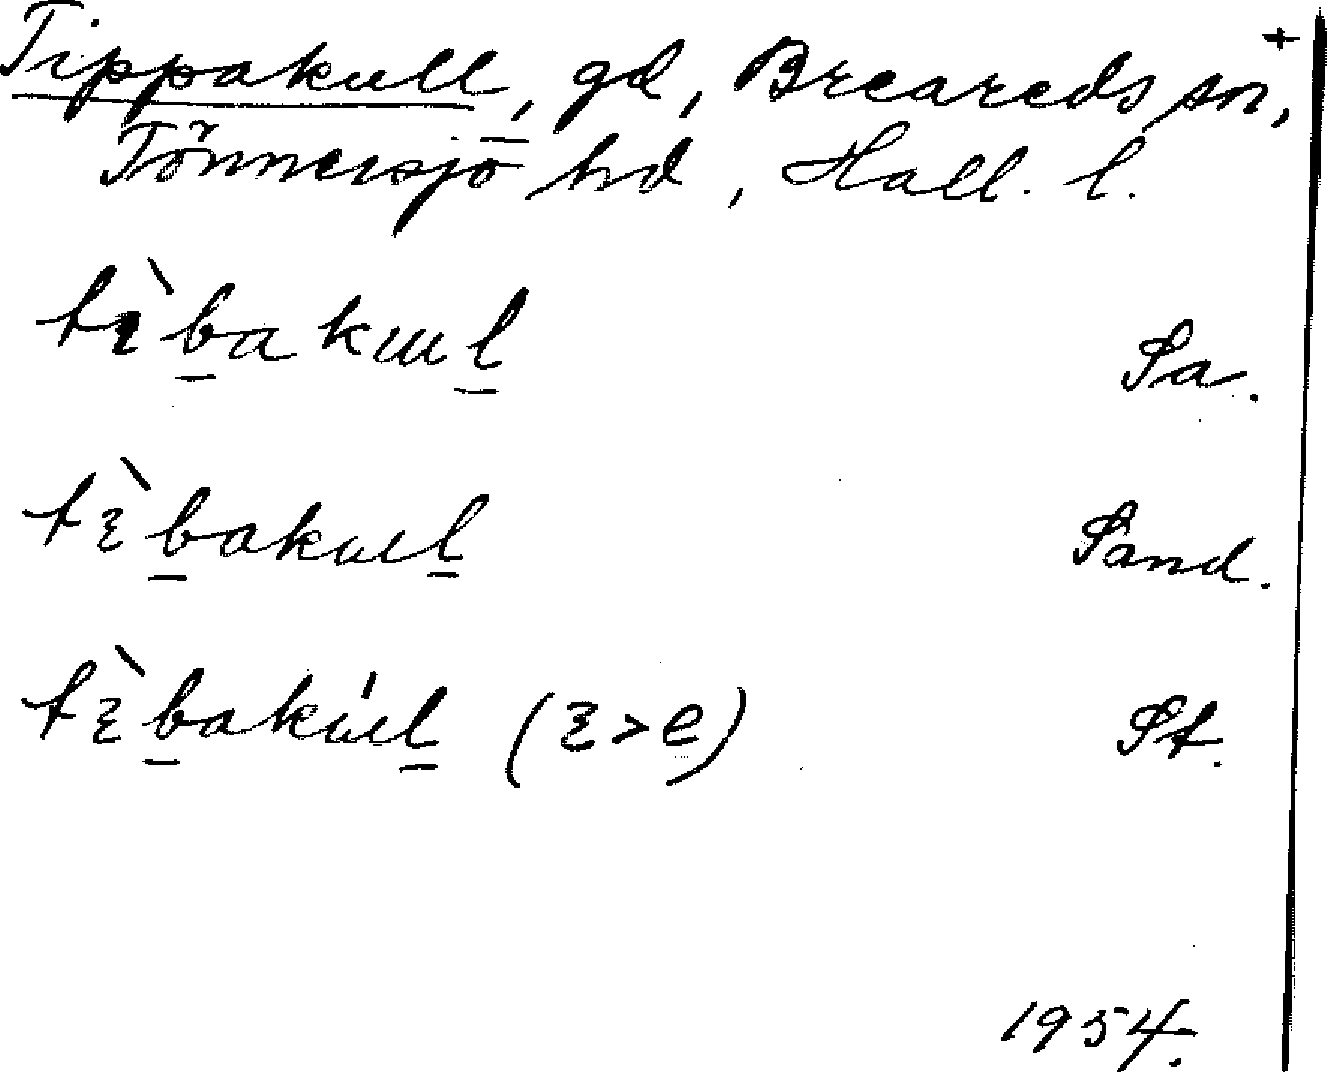 Tippakull, gd, Breareds sn, +
Tönnersjö hd, Hall. l.
tɪ̀b̲akɯl̲ Sa.
tɛ̀b̲akɯl̲ Sand.
tɛ̀b̲akɯ́l̲ (ɛ>e) St.
1954.